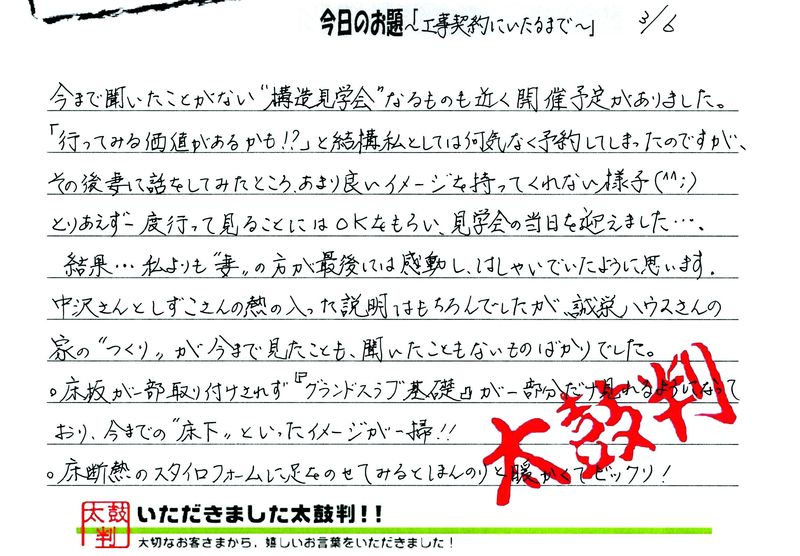 今日のお題～「工事契約にいたるまで～」 3/6
今まで聞いたことがない“構造見学会”なるものも近く開催予定がありました。
「行ってみる価値があるかも!?」と結構私としては何気なく予約してしまったのですが、
その後妻に話をしてみたところ、あまり良いイメージを持ってくれない様子(^^;)
とりあえず一度行って見ることにはOKをもらい、見学会の当日を迎えました…。
結果…私よりも“妻”の方が最後には感動し、はしゃいでいたように思います。
中沢さんとしずこさんの熱の入った説明はもちろんでしたが、誠栄ハウスさんの
家の“つくり”が今まで見たことも、聞いたこともないものばかりでした。
○床板が一部取り付けされず『グランドスラブ基礎』が一部分だけ見れるようになって
おり、今までの“床下”といったイメージが一掃!!
○床断熱のスタイロフォームに足をのせてみるとほんのりと暖かくてビックリ!
太鼓判
太鼓判
いただきました太鼓判!!
大切なお客さまから、嬉しいお言葉をいただきました!